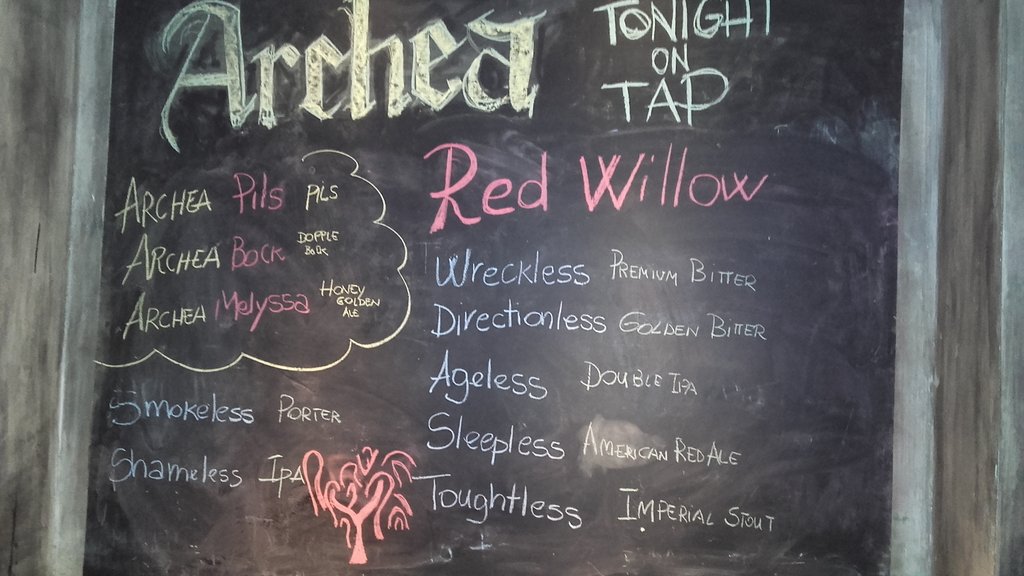 Archea
TONIGHT
ON
TAP
ARCHEA Pils PILS
ARCHEA Bock DOPPLE
BOCK
ARCHEA Melyssa HONEY
GOLDEN
ALE
Smokeless PORTER
Shameless IPA
Red Willow
Wreckless PREMIUM BITTER
Directionless GOLDEN BITTER
Ageless DOUBLE IPA
Sleepless AMERICAN RED ALE
Toughtless IMPERIAL STOUT